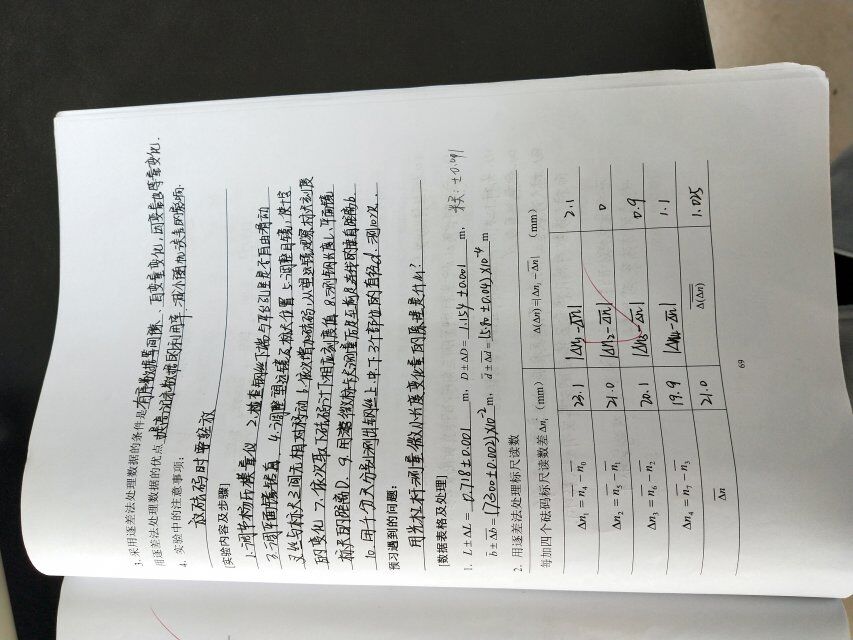 3. 采用逐差法处理数据的条件是有序数据等间隔、自变量变化,因变量也等量变化.
用逐差法处理数据的优点提高了对数据的利用率,减小了随机误差的影响.
4. 实验中的注意事项:
放砝码时要轻放
[实验内容及步骤]
1.调节杨氏模量仪 2.检查钢丝下端与平台孔是否自由滑动
3.调平面镜转角 4.调整望远镜及标尺位置 5.调整目镜,使十字
叉丝与标尺之间无相对移动 6.依次增加砝码,从望远镜观察标尺刻度
的变化 7.依次取下砝码记下相应刻度值 8.测钢丝长L,平面镜
标尺的距离D. 9.用游标卡尺测量后足至前足连线的垂直距离b.
10.用千分尺分别测出钢丝上.中.下3个部位的直径d.测10次.
预习遇到的问题:
用光杠杆测量微小长度变化量的原理是什么?
[数据表格及处理]
1. L±ΔL= 0.718±0.001 m, D±ΔD= 1.154±0.001 m, ±0.091
b±Δb=(7.300±0.002)×10⁻² m, d±Δd= ±0.04)×10⁻⁴ m
2. 用逐差法处理标尺读数
每加四个砝码标尺读数差 Δnᵢ (mm) Δ(Δn)=|Δnᵢ−Δn| (mm)
Δn₁=n₄−n₀ 23.1 |Δn₁−Δn| 2.1
Δn₂=n₅−n₁ 21.0 |Δn₂−Δn| 0
Δn₃=n₆−n₂ 20.1 |Δn₃−Δn| 0.9
Δn₄=n₇−n₃ 19.9 |Δn₄−Δn| 1.1
Δn 21.0 Δ(Δn) 1.025
69